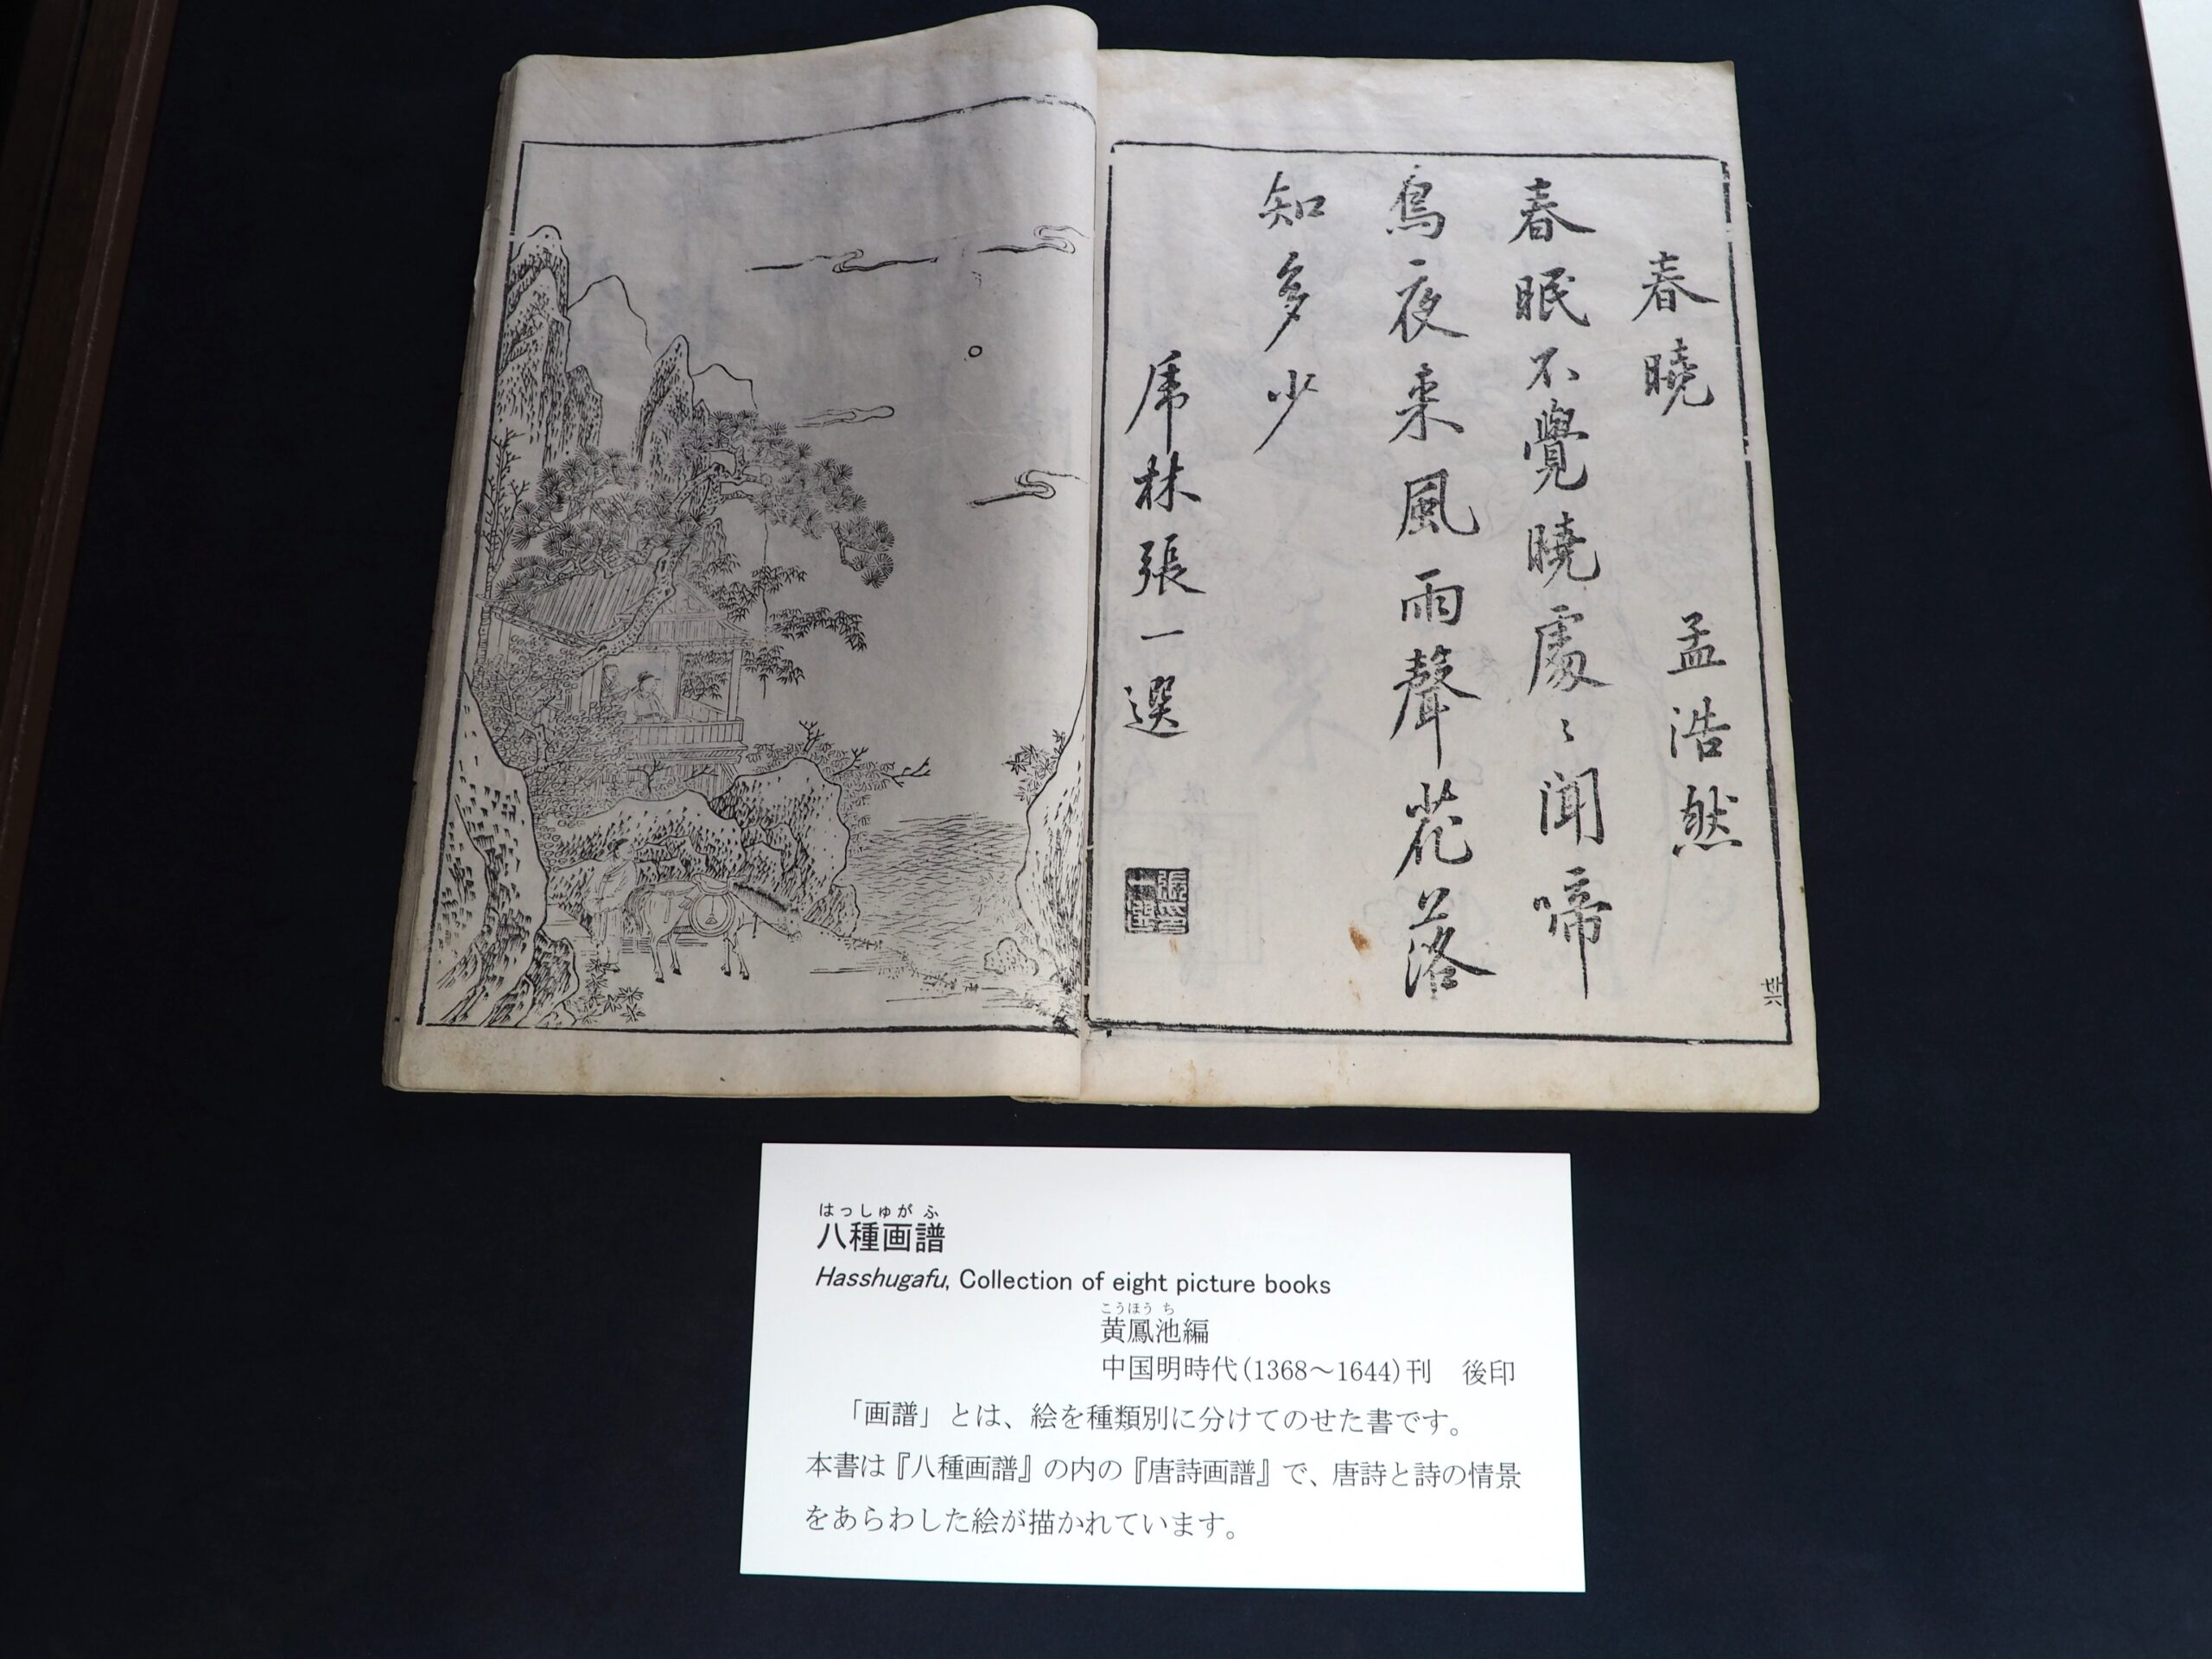 春曉 孟浩然
春眠不覺曉處〻聞啼
鳥夜来風雨聲花落
知多少
虎林張一選
はっしゅがふ
八種画譜
Hasshugafu, Collection of eight picture books
こうほうち
黄鳳池編
中国明時代(1368～1644)刊　後印
「画譜」とは、絵を種類別に分けてのせた書です。
本書は『八種画譜』の内の『唐詩画譜』で、唐詩と詩の情景
をあらわした絵が描かれています。